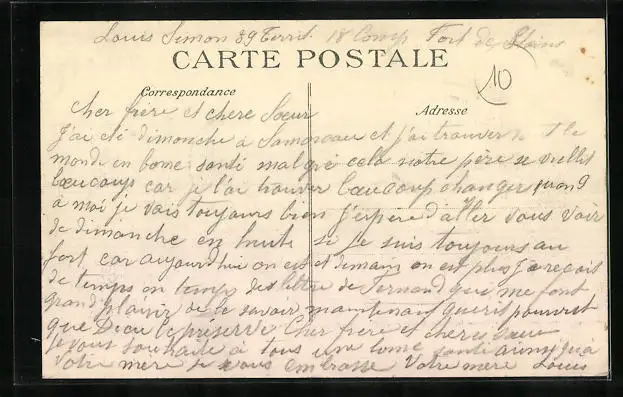 Louis Simon 89 Territ. 18 Comp Fort de Stains
CARTE POSTALE
10
Correspondance
Adresse
cher frère et chere Soeur
J'ai été dimanche a et j'ai trouver le
monde en bone santé malgré cela notre père se viellit
beaucoup car je l'ai trouver beaucoup changer quand
a moi je vais toujours bien j'espère d'aller vous voir
de dimanche en huite si je suis toujours au
fort car aujourdhui on est et demain on est plus J'a reçois
de temps en temps des lettre de Fernand qui me font
grand plaisir de le savoir maintenant pourvut
que Dieu le préserve Cher frère et chere soeur
je vous souhaite à tous une bone santé ainsi qu'a
votre mère Je vous embrasse Votre Louis